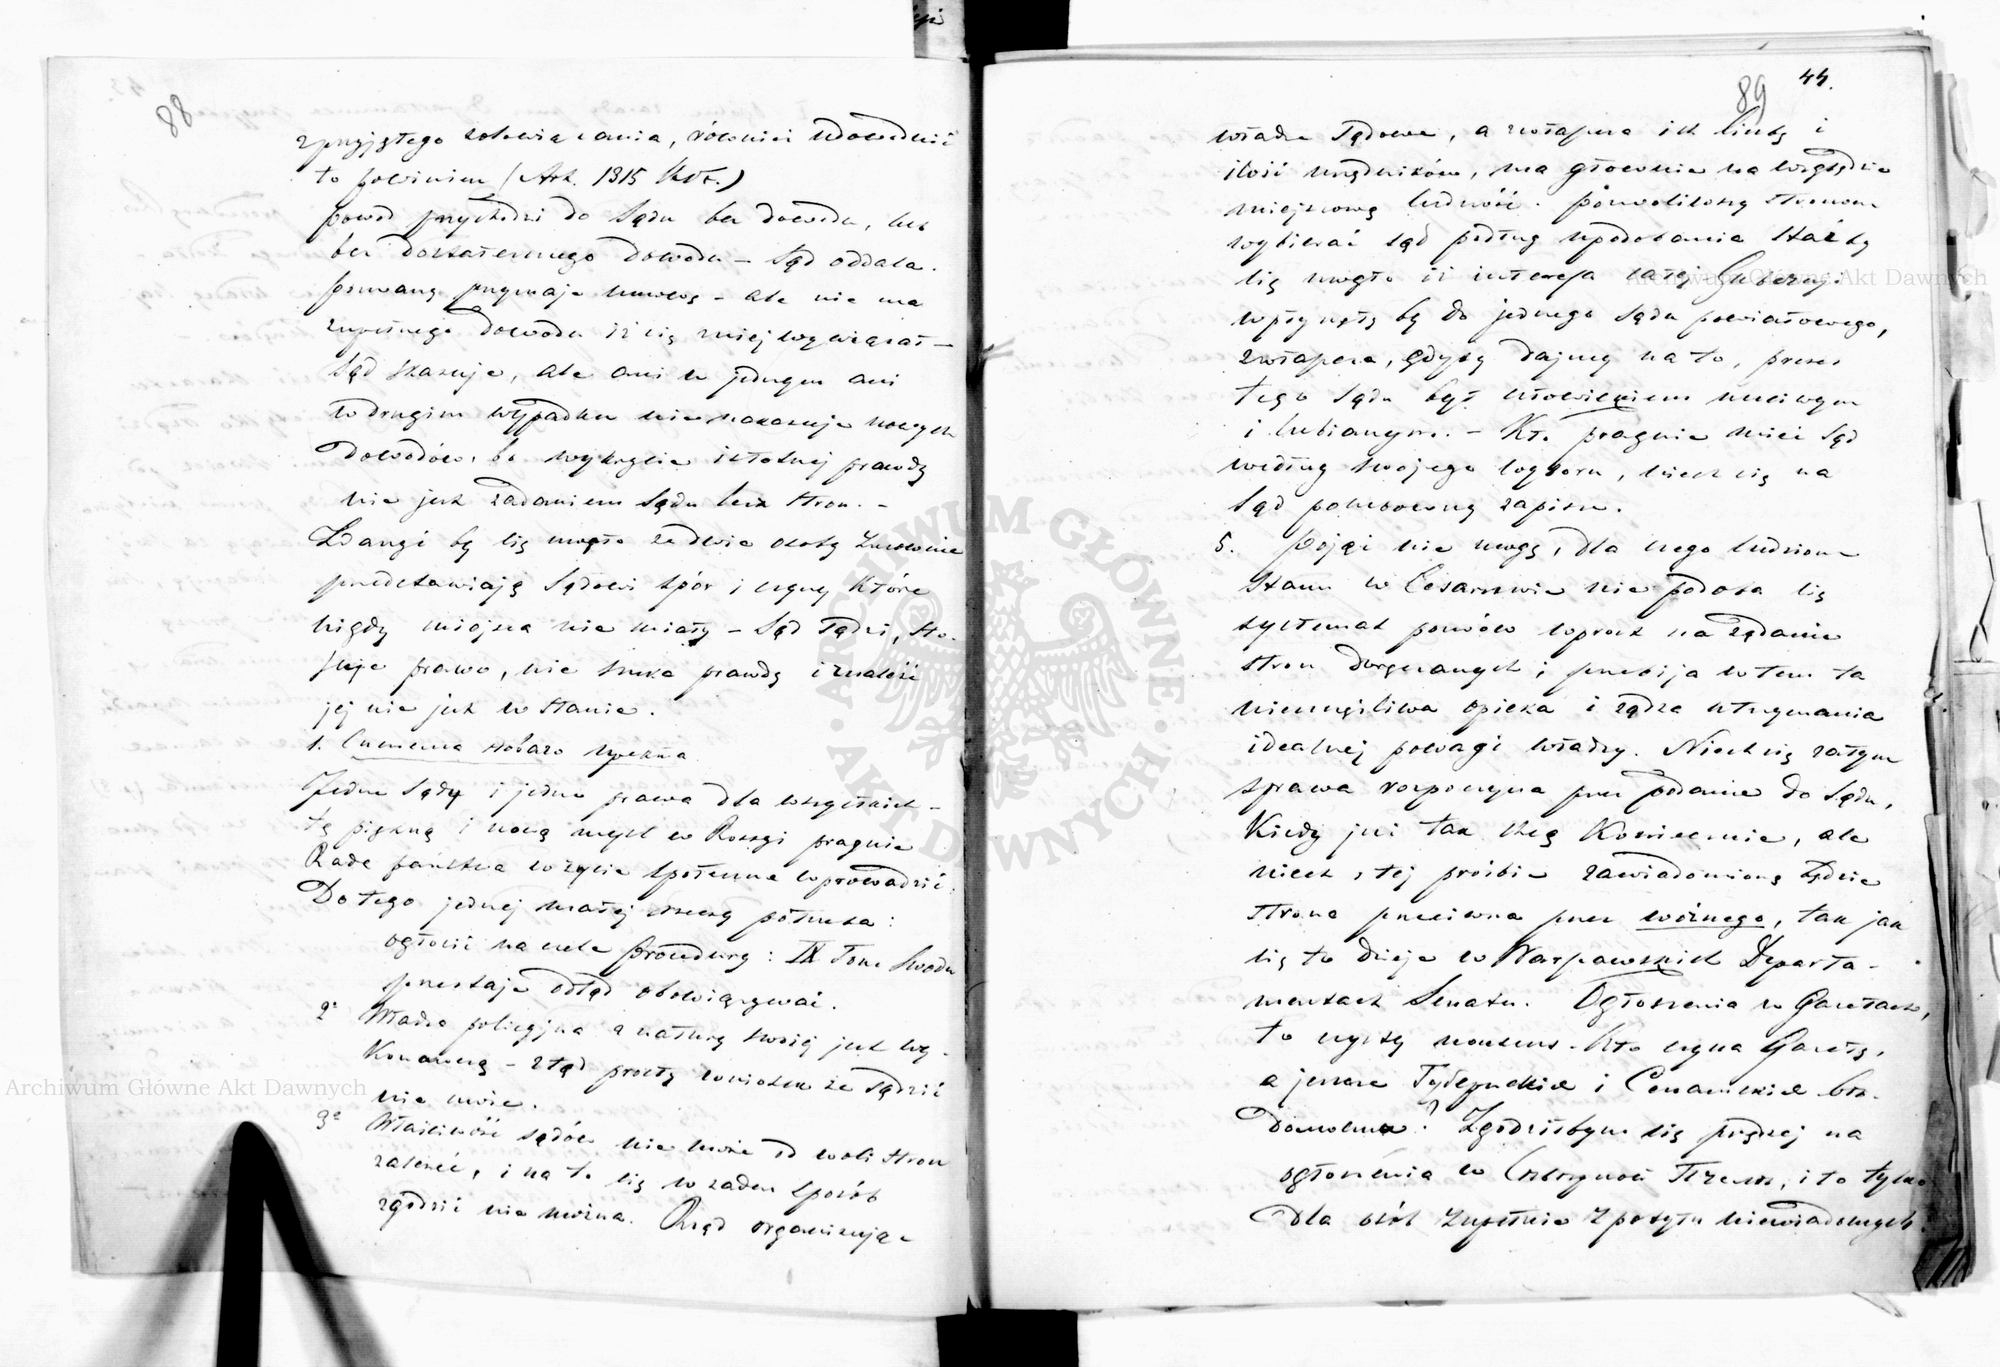 88
z przyjętego zobowiązania, również udowodnić
to powinien (Art. 1315 )
powod przychodzi do Sądu bez dowodu, lub
bez dostatecznego dowodu – Sąd oddala.
pozwany przyznaje umowę – ale nie ma
zupełnego dowodu iż się z niej wywiązał –
Sąd skazuje, ale ani w jednym ani
w drugim wypadku nie nakazuje nowych
dowodów, bo wykrycie istotnej prawdy
nie jest zadaniem Sądu lecz stron. –
Zdarzyć by się mogło że dwie osoby zmownie
przedstawiają Sądowi spór i czyny które
nigdy miejsca nie miały – Sąd sądzi, sto-
suje prawo, nie szuka prawdy i znaleść
jej nie jest w stanie.
1.
Jedne Sądy i jedne prawa dla wszystkich –
tę piękną i nową myśl w Rossyi pragnie
Rada państwa w życie społeczne wprowadzić:
Do tego jednej małej rzeczy potrzeba:
ogłosić na czele procedury: IX Tom Swodu
przestaje odtąd obowiązywać.
2° Władza policyjna z natury swojej jest wy-
konawczą – ztąd prosty wniosek że sądzić
nie może.
3° Właściwość sądów nie może od woli stron
zależeć, i na to się w żaden sposób
zgodzić nie można. Rząd organizując
89 44.
władze Sądowe, a zwłaszcza ich liczbę i
ilość urzędników, ma głównie na względzie
miejscową ludność. pozwoliwszy stronom
wybierać sąd podług upodobania stać by
się mogło iż interesa całej Gubernji
wpłynęły by do jednego Sądu powiatowego,
zwłaszcza, gdyby dajmy na to, prezes
tego Sądu był człowiekiem uczciwym
i lubianym. – Kto pragnie mieć Sąd
według swojego wyboru, niech się na
Sąd polubowny zapisze.
5. Pojąć nie mogę, dla czego ludziom
stanu w Cesarstwie nie podoba się
systemat pozwów wprost na żądanie
stron doręczanych; przebija w tem ta
nieszczęśliwa opieka i żądza utrzymania
idealnej powagi władzy. Niech się zatym
sprawa rozpoczyna przez podanie do Sądu,
kiedy już tak chcą koniecznie, ale
niech o tej prośbie zawiadomioną będzie
strona przeciwna przez woźnego, tak jak
się to dzieje w Warszawskich Departa-
mentach Senatu. Ogłoszenia w Gazetach,
to czysty nonsens. Kto czyta Gazety,
a jeszcze i Senackie
? Zgodziłbym się prędzej na
ogłoszenia w , i to tylko
dla osób zupełnie z pobytu niewiadomych.
Archiwum Główne Akt Dawnych
Archiwum Główne Akt Dawnych
ARCHIWUM GŁÓWNE · AKT DAWNYCH ·